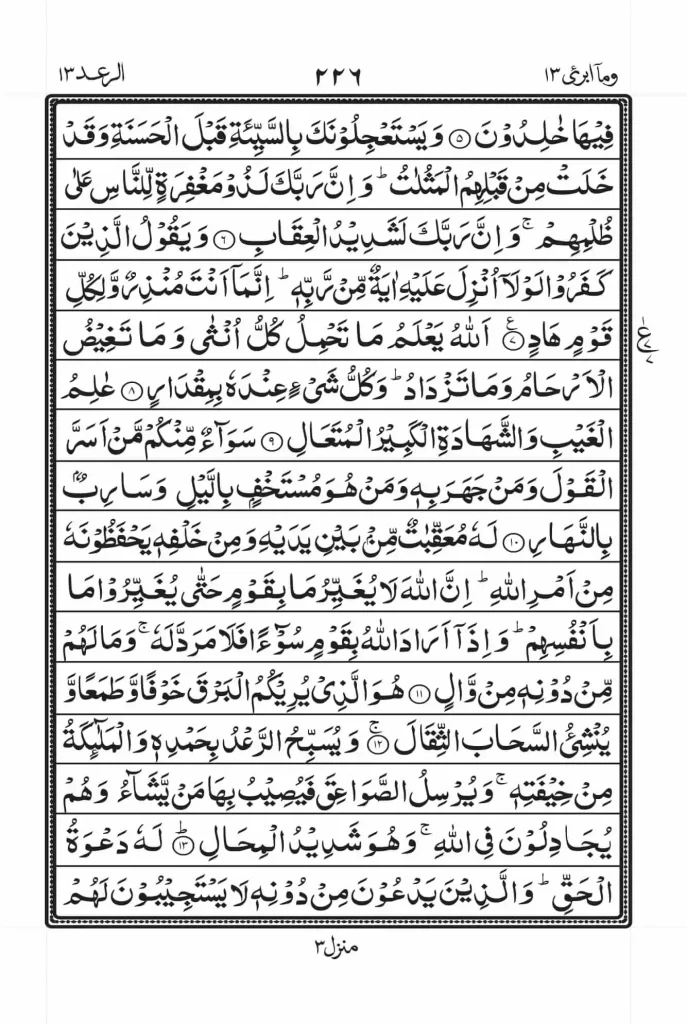 وماۤ ابرئ ١٣
٢٢٦
الرعد ١٣
فِيْهَا خٰلِدُوْنَ ۝٥ وَيَسْتَعْجِلُوْنَكَ بِالسَّيِّئَةِ قَبْلَ الْحَسَنَةِ وَقَدْ
خَلَتْ مِنْ قَبْلِهِمُ الْمَثُلٰتُ ؕ وَاِنَّ رَبَّكَ لَذُوْ مَغْفِرَةٍ لِّلنَّاسِ عَلٰى
ظُلْمِهِمْ ۚ وَاِنَّ رَبَّكَ لَشَدِيْدُ الْعِقَابِ ۝٦ وَيَقُوْلُ الَّذِيْنَ
كَفَرُوْا لَوْلَاۤ اُنْزِلَ عَلَيْهِ اٰيَةٌ مِّنْ رَّبِّهٖ ؕ اِنَّمَاۤ اَنْتَ مُنْذِرٌ وَّلِكُلِّ
قَوْمٍ هَادٍ ۝٧ اَللّٰهُ يَعْلَمُ مَا تَحْمِلُ كُلُّ اُنْثٰى وَمَا تَغِيْضُ
الْاَرْحَامُ وَمَا تَزْدَادُ ؕ وَكُلُّ شَىْءٍ عِنْدَهٗ بِمِقْدَارٍ ۝٨ عٰلِمُ
الْغَيْبِ وَالشَّهَادَةِ الْكَبِيْرُ الْمُتَعَالِ ۝٩ سَوَآءٌ مِّنْكُمْ مَّنْ اَسَرَّ
الْقَوْلَ وَمَنْ جَهَرَ بِهٖ وَمَنْ هُوَ مُسْتَخْفٍۭ بِالَّيْلِ وَسَارِبٌۢ
بِالنَّهَارِ ۝١٠ لَهٗ مُعَقِّبٰتٌ مِّنْۢ بَيْنِ يَدَيْهِ وَمِنْ خَلْفِهٖ يَحْفَظُوْنَهٗ
مِنْ اَمْرِ اللّٰهِ ؕ اِنَّ اللّٰهَ لَا يُغَيِّرُ مَا بِقَوْمٍ حَتّٰى يُغَيِّرُوْا مَا
بِاَنْفُسِهِمْ ؕ وَاِذَاۤ اَرَادَ اللّٰهُ بِقَوْمٍ سُوْٓءًا فَلَا مَرَدَّ لَهٗ ۚ وَمَا لَهُمْ
مِّنْ دُوْنِهٖ مِنْ وَّالٍ ۝١١ هُوَ الَّذِىْ يُرِيْكُمُ الْبَرْقَ خَوْفًا وَّطَمَعًا وَّ
يُنْشِئُ السَّحَابَ الثِّقَالَ ۝١٢ۚ وَيُسَبِّحُ الرَّعْدُ بِحَمْدِهٖ وَالْمَلٰٓئِكَةُ
مِنْ خِيْفَتِهٖ ۚ وَيُرْسِلُ الصَّوَاعِقَ فَيُصِيْبُ بِهَا مَنْ يَّشَآءُ وَهُمْ
يُجَادِلُوْنَ فِى اللّٰهِ ۚ وَهُوَ شَدِيْدُ الْمِحَالِ ۝١٣ؕ لَهٗ دَعْوَةُ
الْحَقِّ ؕ وَالَّذِيْنَ يَدْعُوْنَ مِنْ دُوْنِهٖ لَا يَسْتَجِيْبُوْنَ لَهُمْ
منزل ٣